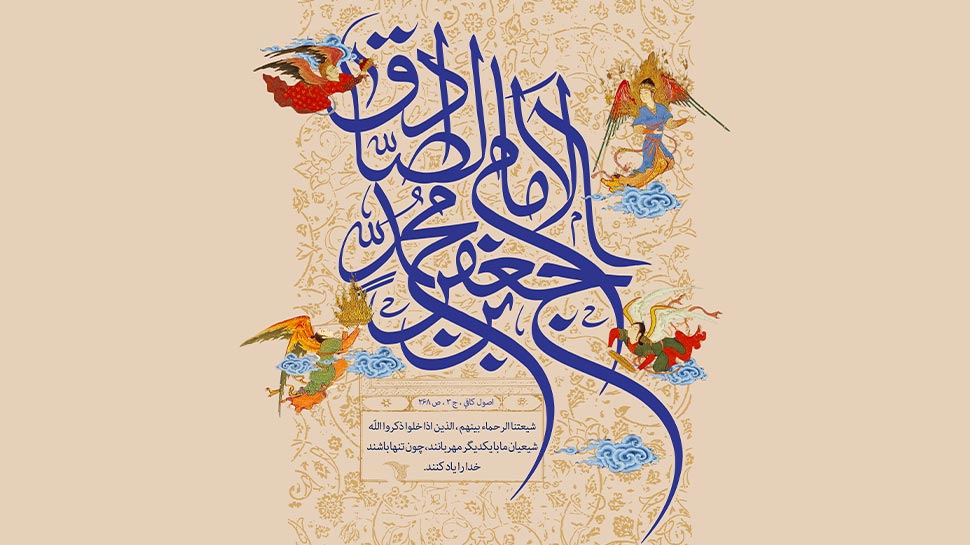 الامام الصادق
جعفر بن محمد
اصول کافی ، ج ۳ ، ص ۲۶۸
شیعتنا الرحماء بینهم ، الذین اذا خلوا ذکروا الله
شیعیان ما با یکدیگر مهربانند، چون تنها باشند
خدا را یاد کنند.